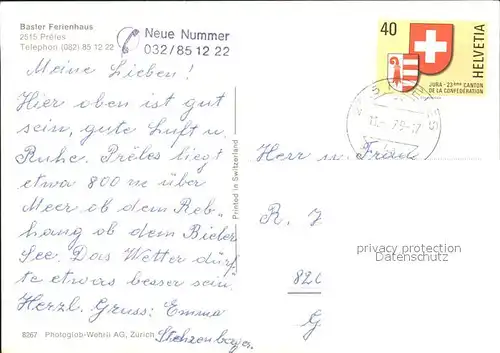 Basler Ferienhaus
2515 Prêles
Telephon (032) 85 12 22
Neue Nummer
032/85 12 22
Meine Lieben!
Hier oben ist gut
sein, gute Luft u.
Ruhe. Prêles liegt
etwa 800 m über
Meer ob dem Reb-
hang ob dem Bieler
See. Das Wetter dürf-
te etwas besser sein.
Herzl. Gruss: Emma
8267 Photoglob-Wehrli AG, Zürich
Printed in Switzerland
40
HELVETIA
JURA · 23ème CANTON
DE LA CONFEDERATION
Herr u.
R.
privacy protection
Datenschutz
820
G